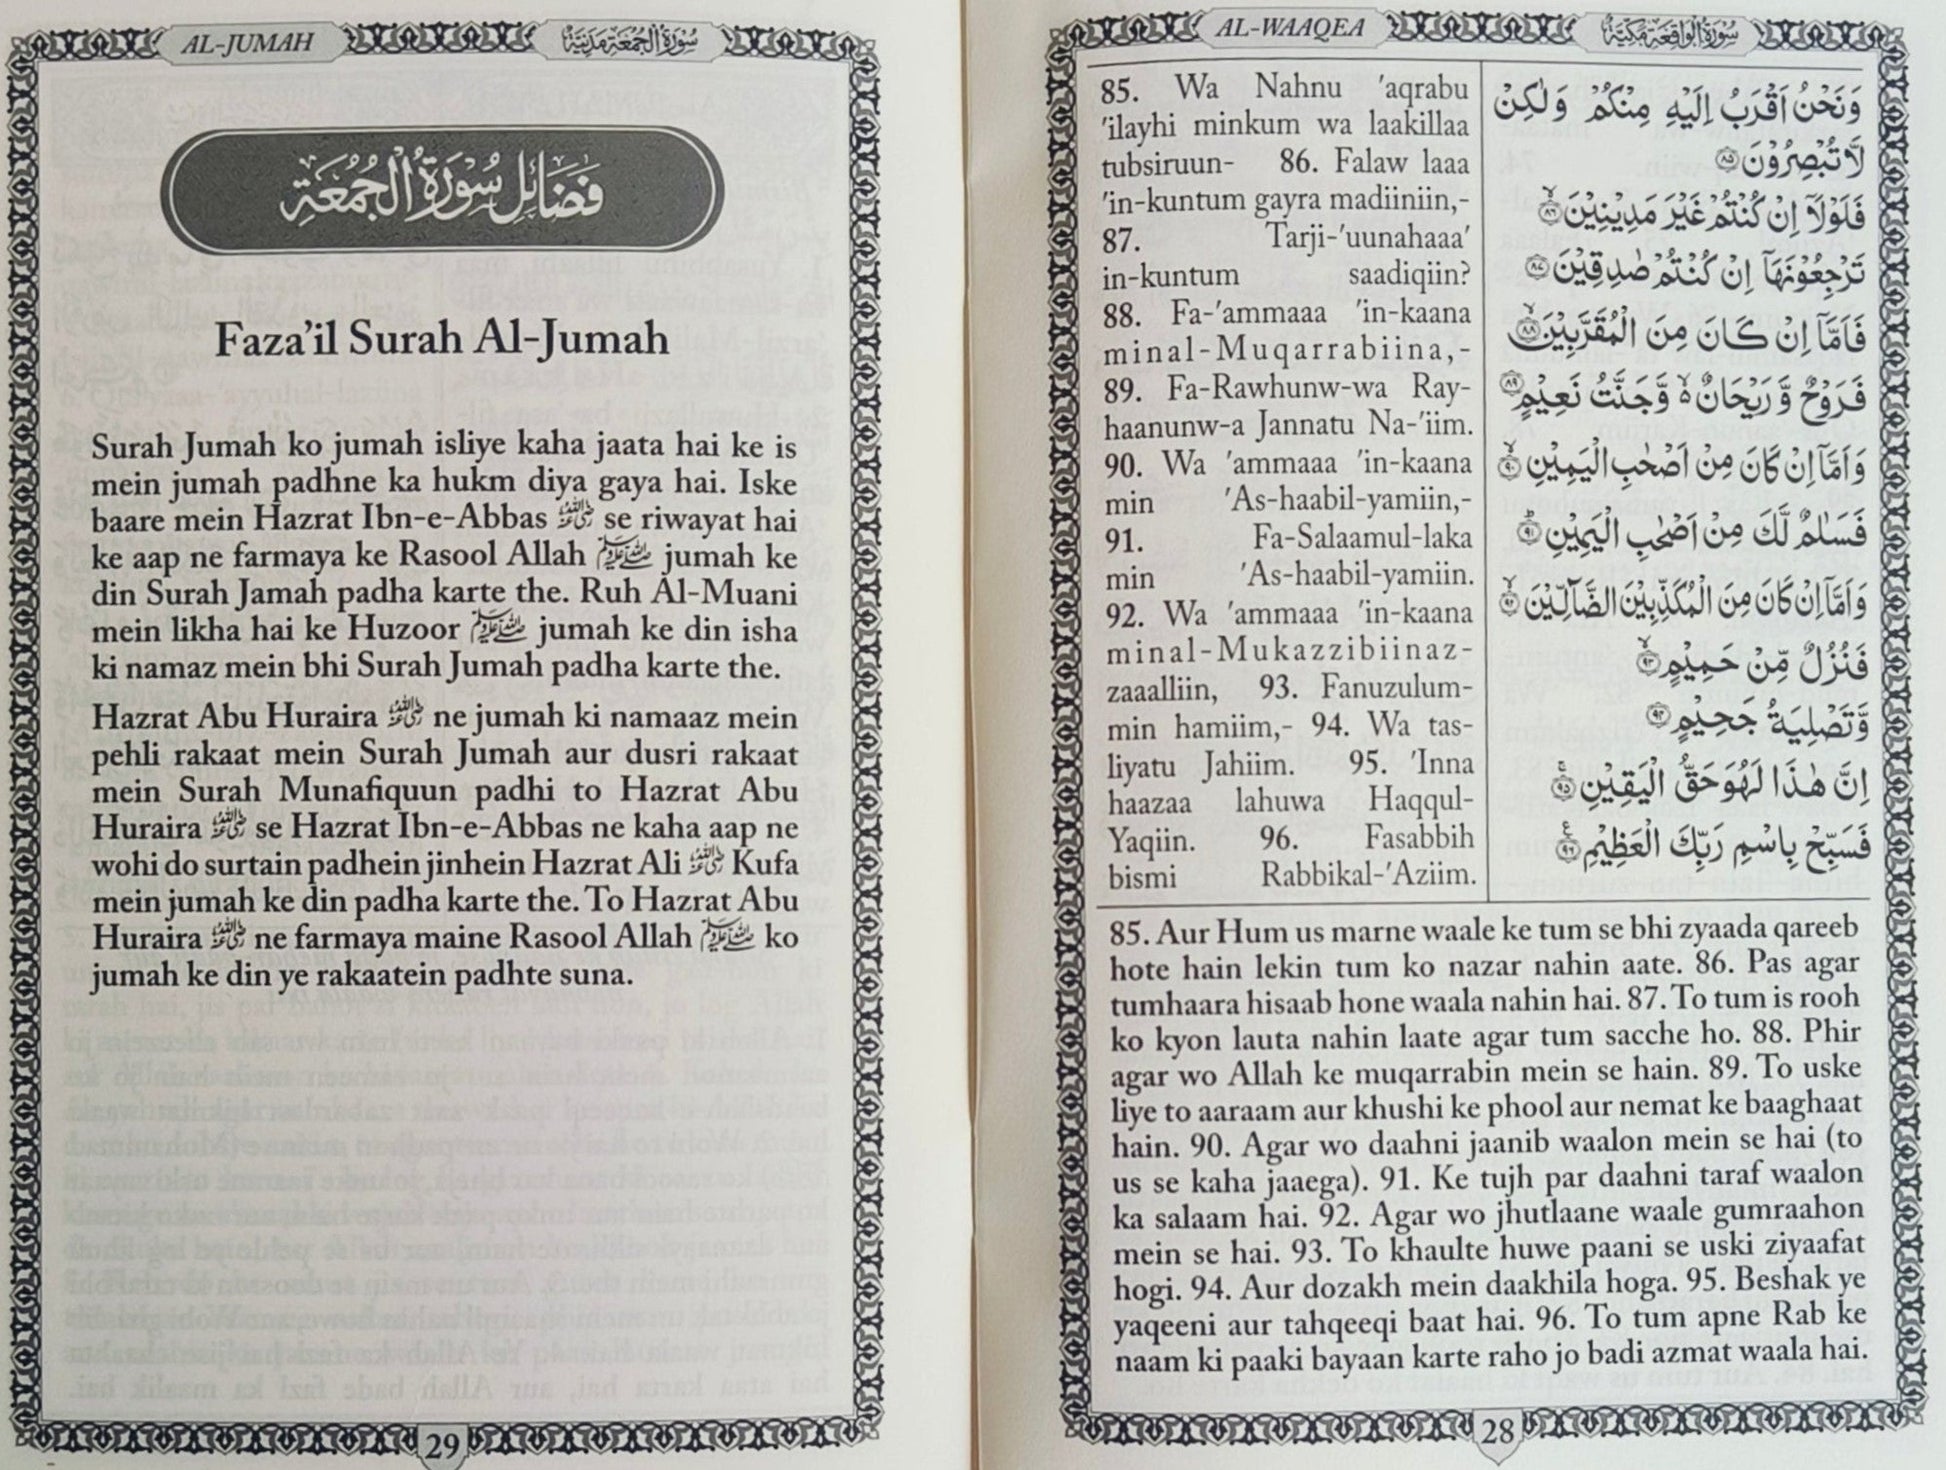 AL-WAAQEA سُورَةُ الْوَاقِعَة مَكِّيَّة
85. Wa Nahnu 'aqrabu
'ilayhi minkum wa laakillaa
tubsiruun- 86. Falaw laaa
'in-kuntum gayra madiiniin,-
87. Tarji-'uunahaaa'
in-kuntum saadiqiin?
88. Fa-'ammaaa 'in-kaana
minal-Muqarrabiina,-
89. Fa-Rawhunw-wa Ray-
haanunw-a Jannatu Na-'iim.
90. Wa 'ammaaa 'in-kaana
min 'As-haabil-yamiin,-
91. Fa-Salaamul-laka
min 'As-haabil-yamiin.
92. Wa 'ammaaa 'in-kaana
minal-Mukazzibiinaz-
zaaalliin, 93. Fanuzulum-
min hamiim,- 94. Wa tas-
liyatu Jahiim. 95. 'Inna
haazaa lahuwa Haqqul-
Yaqiin. 96. Fasabbih
bismi Rabbikal-'Aziim.
وَنَحْنُ اَقْرَبُ اِلَيْهِ مِنْكُمْ وَلٰكِنْ
لَّا تُبْصِرُوْنَ ۝٨٥
فَلَوْلَآ اِنْ كُنْتُمْ غَيْرَ مَدِيْنِيْنَ ۝٨٦ۙ
تَرْجِعُوْنَهَآ اِنْ كُنْتُمْ صٰدِقِيْنَ ۝٨٧
فَاَمَّآ اِنْ كَانَ مِنَ الْمُقَرَّبِيْنَ ۝٨٨ۙ
فَرَوْحٌ وَّرَيْحَانٌ ۙ وَّجَنَّتُ نَعِيْمٍ ۝٨٩
وَاَمَّآ اِنْ كَانَ مِنْ اَصْحٰبِ الْيَمِيْنِ ۝٩٠ۙ
فَسَلٰمٌ لَّكَ مِنْ اَصْحٰبِ الْيَمِيْنِ ۝٩١ؕ
وَاَمَّآ اِنْ كَانَ مِنَ الْمُكَذِّبِيْنَ الضَّآلِّيْنَ ۝٩٢ۙ
فَنُزُلٌ مِّنْ حَمِيْمٍ ۝٩٣ۙ
وَّتَصْلِيَةُ جَحِيْمٍ ۝٩٤
اِنَّ هٰذَا لَهُوَ حَقُّ الْيَقِيْنِ ۝٩٥ۚ
فَسَبِّحْ بِاسْمِ رَبِّكَ الْعَظِيْمِ ۝٩٦
85. Aur Hum us marne waale ke tum se bhi zyaada qareeb
hote hain lekin tum ko nazar nahin aate. 86. Pas agar
tumhaara hisaab hone waala nahin hai. 87. To tum is rooh
ko kyon lauta nahin laate agar tum sacche ho. 88. Phir
agar wo Allah ke muqarrabin mein se hain. 89. To uske
liye to aaraam aur khushi ke phool aur nemat ke baaghaat
hain. 90. Agar wo daahni jaanib waalon mein se hai (to
us se kaha jaaega). 91. Ke tujh par daahni taraf waalon
ka salaam hai. 92. Agar wo jhutlaane waale gumraahon
mein se hai. 93. To khaulte huwe paani se uski ziyaafat
hogi. 94. Aur dozakh mein daakhila hoga. 95. Beshak ye
yaqeeni aur tahqeeqi baat hai. 96. To tum apne Rab ke
naam ki paaki bayaan karte raho jo badi azmat waala hai.
28
AL-JUMAH سُورَةُ الْجُمُعَة مَدَنِيَّة
فَضَائِل سُوْرَةُ الْجُمُعَةِ
Faza'il Surah Al-Jumah
Surah Jumah ko jumah isliye kaha jaata hai ke is
mein jumah padhne ka hukm diya gaya hai. Iske
baare mein Hazrat Ibn-e-Abbas رضي الله عنه se riwayat hai
ke aap ne farmaya ke Rasool Allah ﷺ jumah ke
din Surah Jamah padha karte the. Ruh Al-Muani
mein likha hai ke Huzoor ﷺ jumah ke din isha
ki namaz mein bhi Surah Jumah padha karte the.
Hazrat Abu Huraira رضي الله عنه ne jumah ki namaaz mein
pehli rakaat mein Surah Jumah aur dusri rakaat
mein Surah Munafiquun padhi to Hazrat Abu
Huraira رضي الله عنه se Hazrat Ibn-e-Abbas ne kaha aap ne
wohi do surtain padhein jinhein Hazrat Ali رضي الله عنه Kufa
mein jumah ke din padha karte the. To Hazrat Abu
Huraira رضي الله عنه ne farmaya maine Rasool Allah ﷺ ko
jumah ke din ye rakaatein padhte suna.
29